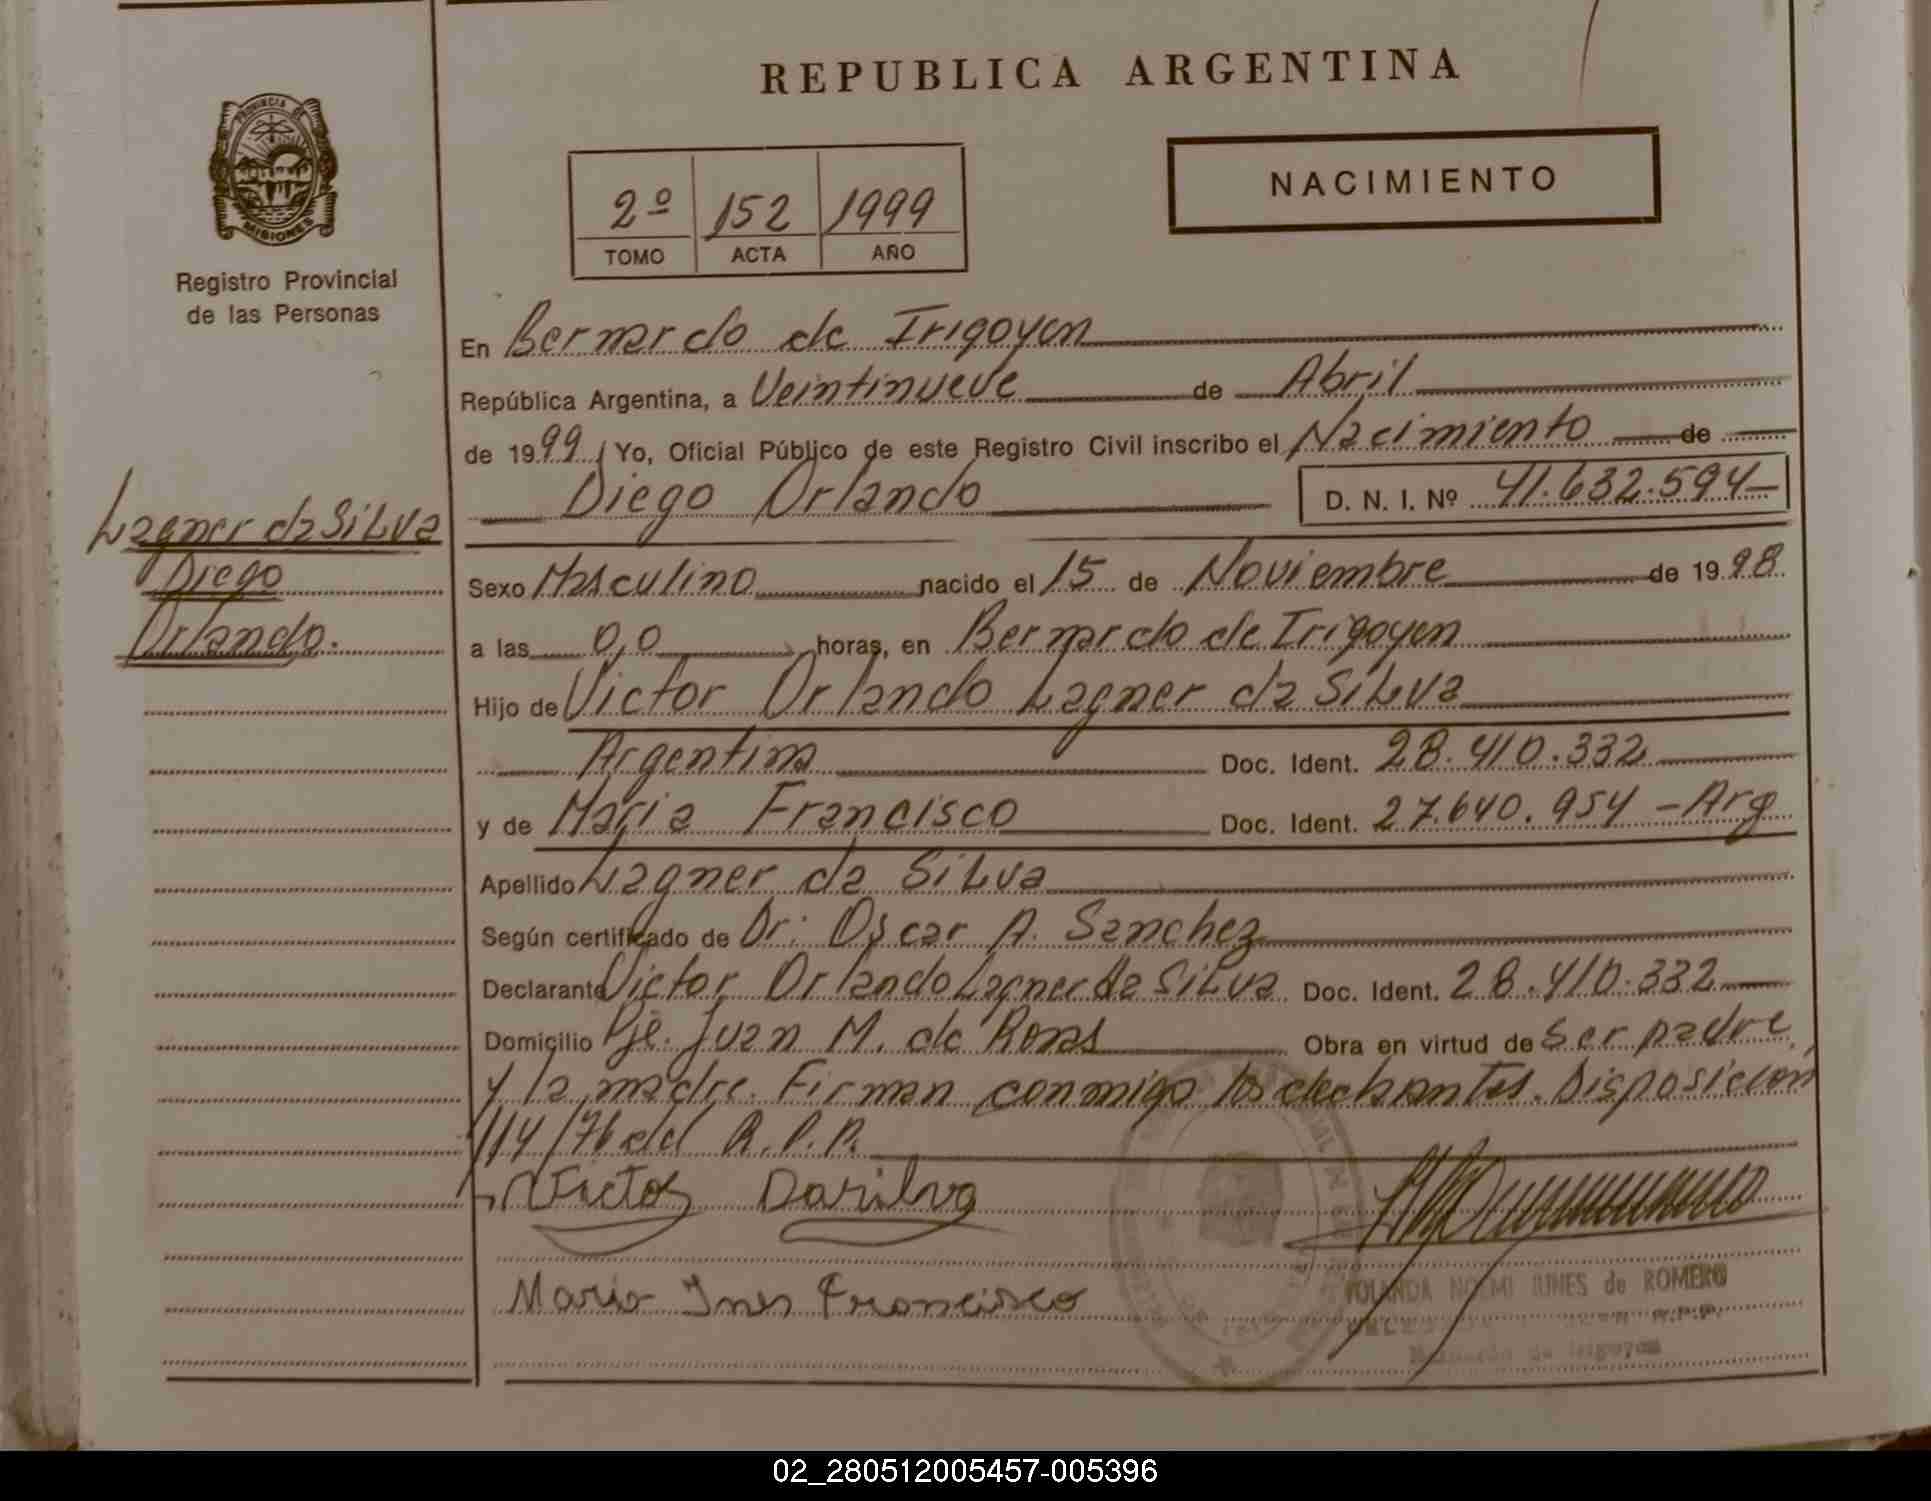 REPUBLICA ARGENTINA
PROVINCIA DE
MISIONES
Registro Provincial
de las Personas
2º 152 1999
TOMO ACTA AÑO
NACIMIENTO
En Bernardo de Irigoyen
República Argentina, a Veintinueve de Abril
de 1999 Yo, Oficial Público de este Registro Civil inscribo el Nacimiento de
Diego Orlando D. N. I. Nº 41.632.594
Lagner da SiLva
Diego
Orlando.
Sexo Masculino nacido el 15 de Noviembre de 1998
a las 0,0 horas, en Bernardo de Irigoyen
Hijo de Victor Orlando Lagner da SiLva
Argentina Doc. Ident. 28.410.332
y de Maria Francisco Doc. Ident. 27.640.954 - Arg
Apellido Lagner da SiLva
Según certificado de Dr: Oscar A. Sanchez
Declarante Victor Orlando Lagner da SiLva Doc. Ident. 28.410.332
Domicilio Pje. Juan M. de Rosas Obra en virtud de ser padre
y la madre. Firman conmigo los declarantes. Disposición
114/76 del R.P.P.
Victor Dasilva
Maria Ines Francisco
YOLANDA NOEMI JUNES de ROMERO
R.P.P.
Bernardo de Irigoyen
02_280512005457-005396